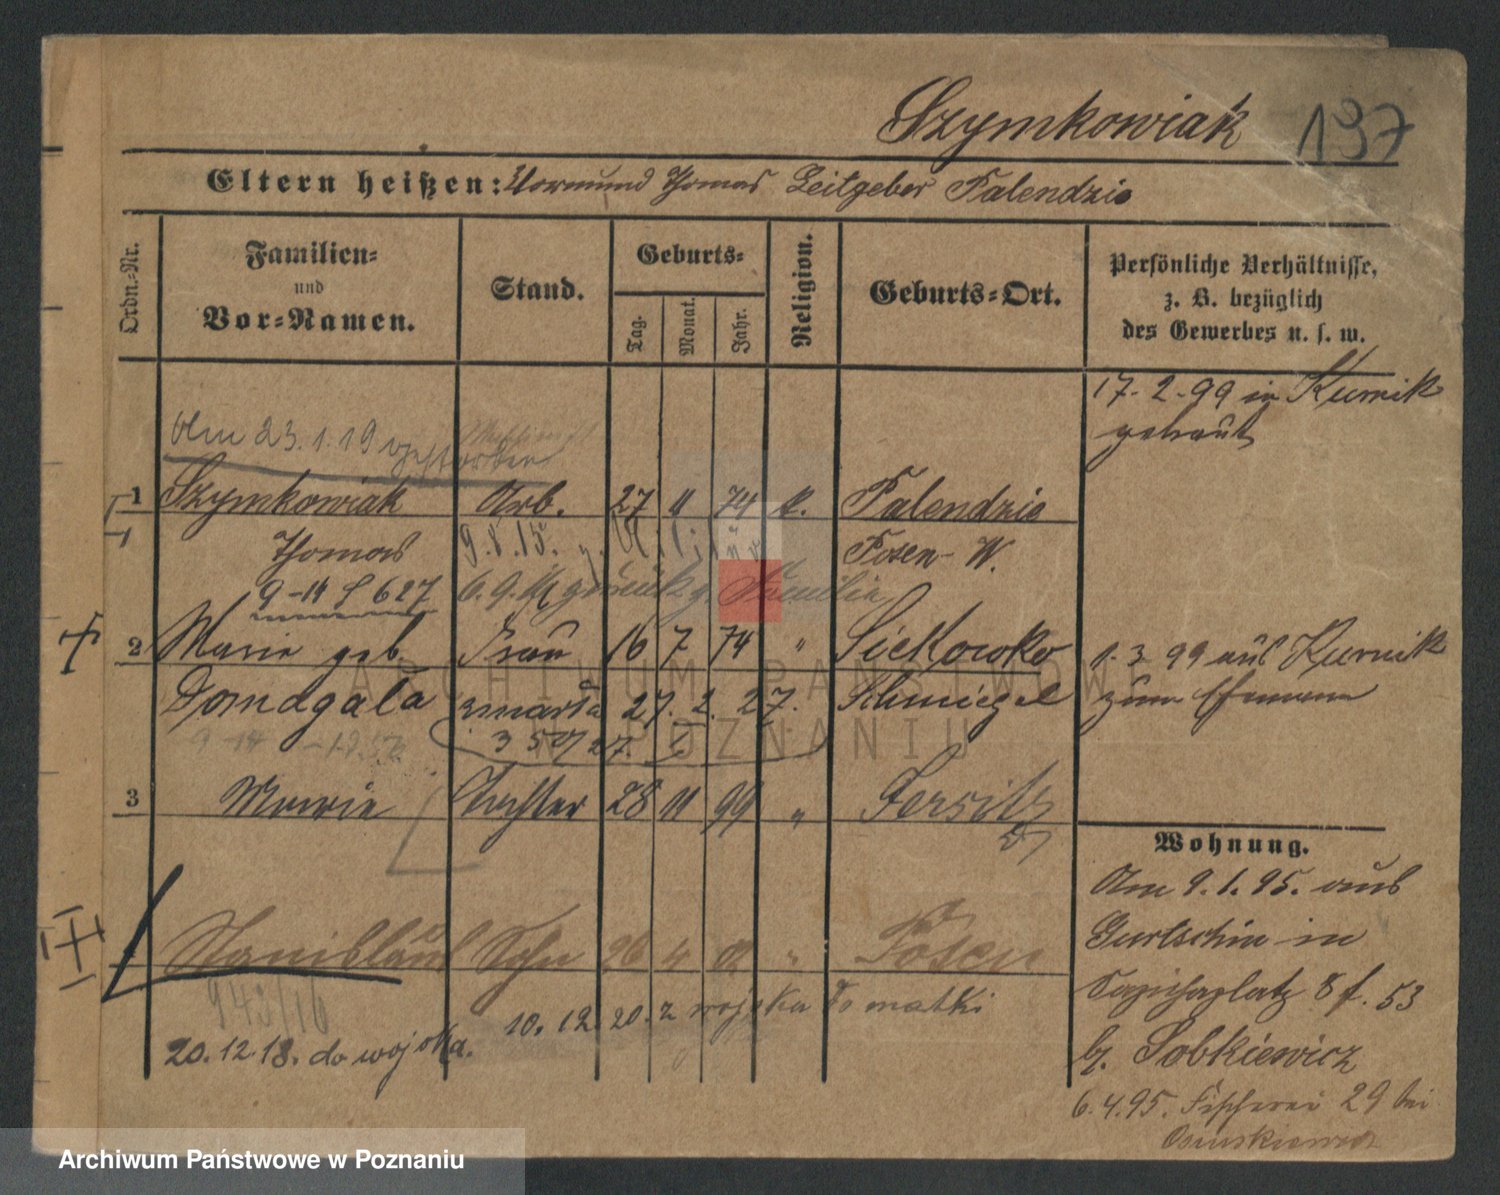 Szymkowiak 137
Eltern heißen: Vormund Thomas Leitgeber Palendzie
Ordn.-Nr.
Familien-
und
Vor-Namen.
Stand.
Geburts-
Tag.
Monat.
Jahr.
Religion.
Geburts-Ort.
Persönliche Verhältnisse,
z. B. bezüglich
des Gewerbes u. s. w.
17. 2. 99 in Kurnik
getraut
Am 23.1.19 verstorben
1 Szymkowiak Arb. 27 11 74 k. Palendzie
Thomas 9.8.15. z. Posen W.
9-14 f 627 6.9. zurück z. Familie
2 Marie geb. Frau 16 7 74 " Siekowko
1. 3. 99 aus Kurnik
Domagala zmarła 27. 2. 27. Schmiegel
zum Ehemann
9-14
350/27.
3 Marie Tochter 28 11 99 " Jersitz
Wohnung.
Am 9.1.95. aus
Gurtschin in
Sapiehaplatz 8 f. 53
b. Sobkiewicz
6.4.95. Fischerei 29 bei
Stanislaus Sohn 26 4 " Posen
943/16
10. 12. 20. z wojska do matki
20. 12. 18. do wojska.
ARCHIWUM PAŃSTWOWE
W POZNANIU
Archiwum Państwowe w Poznaniu